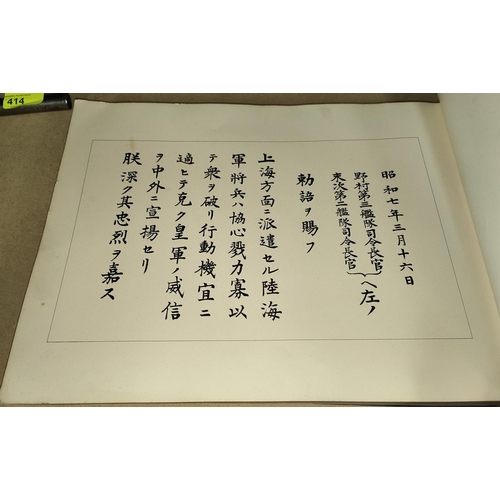 昭和七年三月十六日
野村第三艦隊司令長官
末次第二艦隊司令長官
へ左ノ
勅語ヲ賜フ
上海方面ニ派遣セル陸海
軍將兵ハ協心戮力寡以
テ衆ヲ破リ行動機宜ニ
適ヒテ克ク皇軍ノ威信
ヲ中外ニ宣揚セリ
朕深ク其忠烈ヲ嘉ス
414